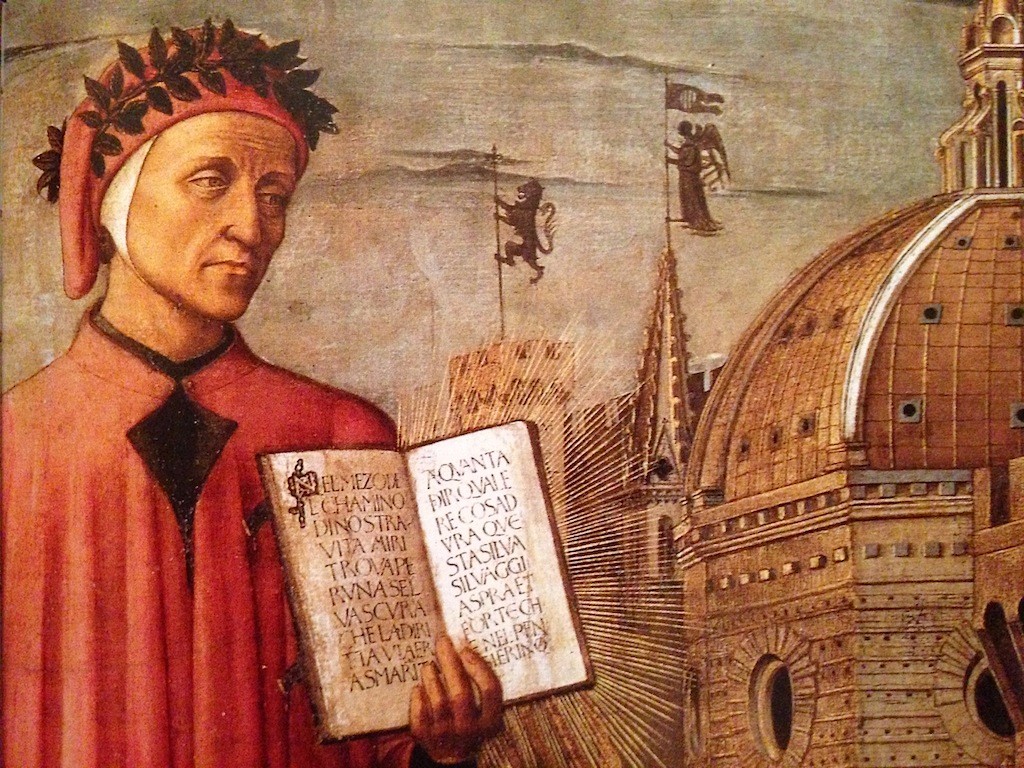 NELMEZODE
LCHAMINO
DINOSTRA
VITA MIRI
TROVAPE
RVNASEL
VASCVRA
CHELADIRI
TTAVIAER
ASMARIT
AQVANTA
DIRQVALE
RECOSAD
VRA QVE
STASILVA
SILVAGGI
ASPRAET
FORTECH
ENELPEN